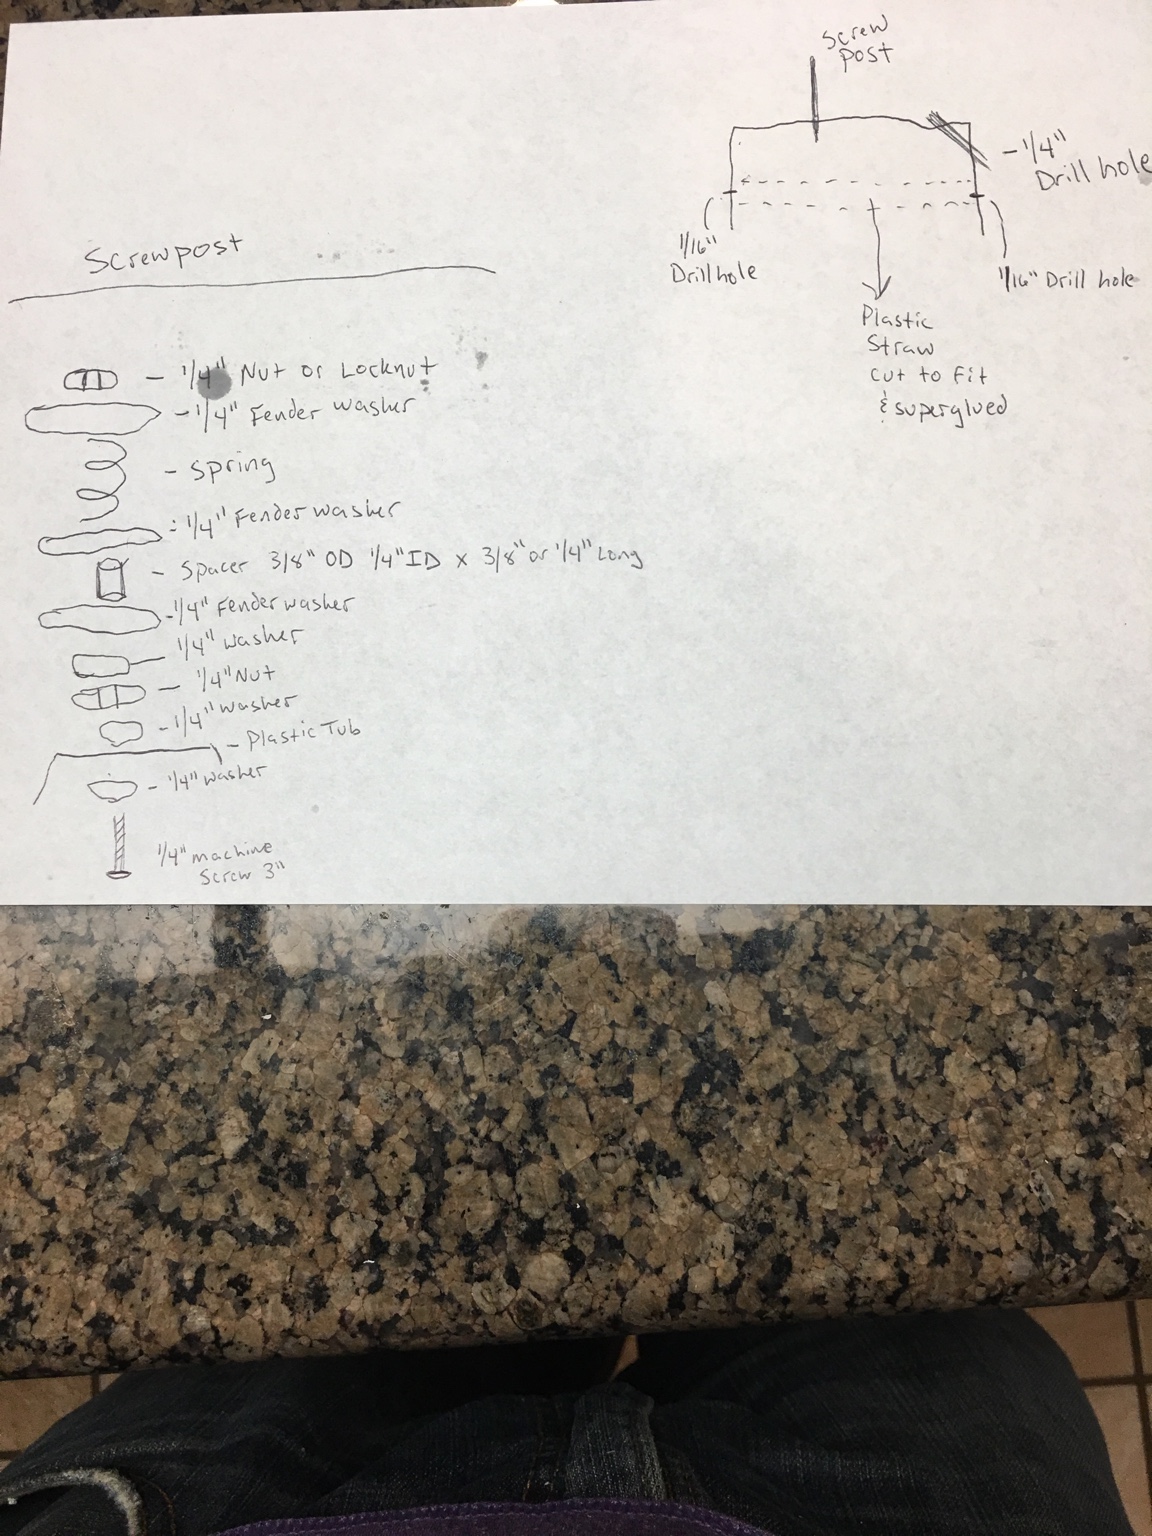 Screw
post
- 1/4"
Drill hole
1/16"
Drill hole
1/16" Drill hole
Plastic
Straw
cut to fit
& superglued
Screwpost
- 1/4" Nut or Locknut
- 1/4" Fender washer
- Spring
- 1/4" Fender washer
- Spacer 3/8" OD 1/4" ID x 3/8" or 1/4" Long
- 1/4" Fender washer
1/4" washer
- 1/4" Nut
- 1/4" washer
- Plastic Tub
- 1/4" washer
1/4" machine
Screw 3"